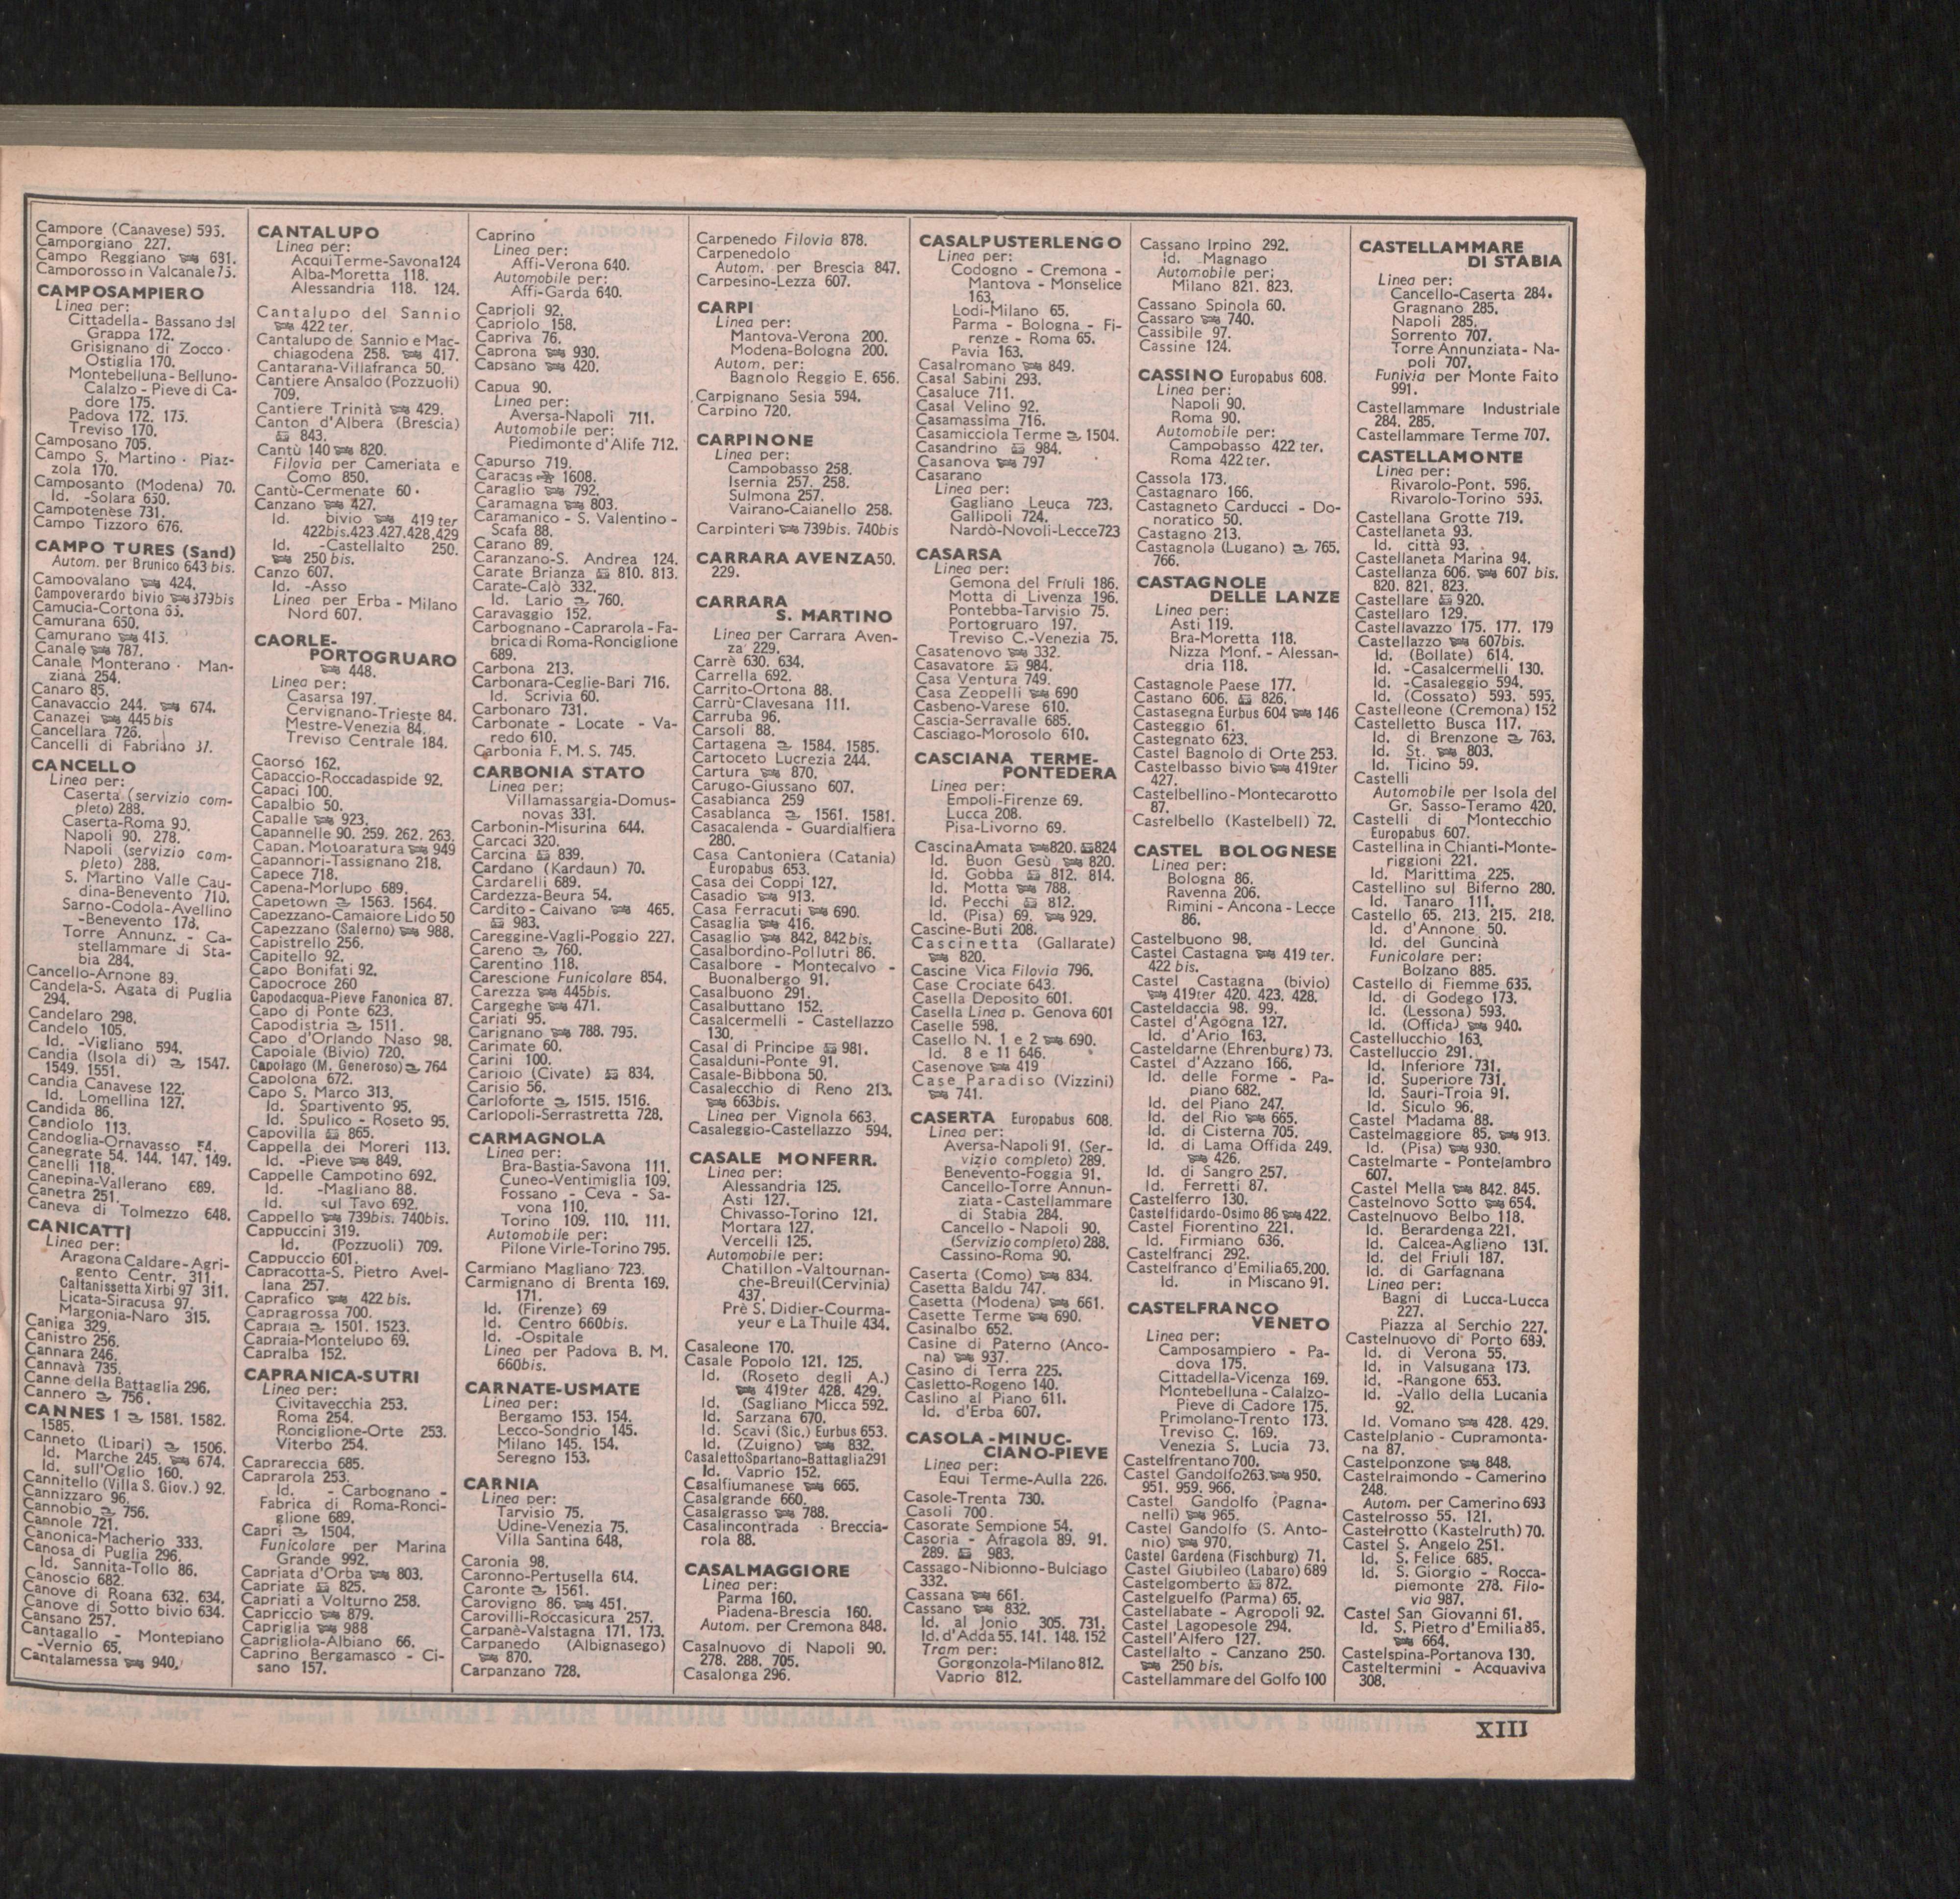 Campore (Canavese) 595.
Camporgiano 227.
Campo Reggiano 681.
Camporosso in Valcanale 75.
CAMPOSAMPIERO
Linea per:
Cittadella - Bassano del
Grappa 172.
Grisignano di Zocco -
Ostiglia 170.
Montebelluna - Belluno-
Calalzo - Pieve di Ca-
dore 175.
Padova 172. 175.
Treviso 170.
Camposano 705.
Campo S. Martino - Piaz-
zola 170.
Camposanto (Modena) 70.
Id. -Solara 650.
Campotenèse 731.
Campo Tizzoro 676.
CAMPO TURES (Sand)
Autom. per Brunico 643 bis.
Campovalano 424.
Campoverardo bivio 379bis
Camucia-Cortona 65.
Camurana 650.
Camurano 415.
Canale 787.
Canale Monterano - Man-
ziana 254.
Canaro 85.
Canavaccio 244. 674.
Canazei 445 bis
Cancellara 726.
Cancelli di Fabriano 37.
CANCELLO
Linea per:
Caserta (servizio com-
pleto) 288.
Caserta-Roma 90.
Napoli 90. 278.
Napoli (servizio com-
pleto) 288.
S. Martino Valle Cau-
dina-Benevento 710.
Sarno-Codola-Avellino
-Benevento 178.
Torre Annunz. - Ca-
stellammare di Sta-
bia 284.
Cancello-Arnone 89.
Candela-S. Agata di Puglia
294.
Candelaro 298.
Candelo 105.
Id. -Vigliano 594.
Candia (Isola di) 1547.
1549. 1551.
Candia Canavese 122.
Id. Lomellina 127.
Candida 86.
Candiolo 113.
Candoglia-Ornavasso 54.
Canegrate 54. 144. 147. 149.
Canelli 118.
Canepina-Vallerano 689.
Canetra 251.
Caneva di Tolmezzo 648.
CANICATTI
Linea per:
Aragona Caldare-Agri-
gento Centr. 311.
Caltanissetta Xirbi 97 311.
Licata-Siracusa 97.
Margonia-Naro 315.
Caniga 329.
Canistro 256.
Cannara 246.
Cannavà 735.
Canne della Battaglia 296.
Cannero 756.
CANNES 1 1581. 1582.
1585.
Canneto (Lipari) 1506.
Id. Marche 245. 674.
Id. sull'Oglio 160.
Cannitello (Villa S. Giov.) 92.
Cannizzaro 96.
Cannobio 756.
Cannole 721.
Canonica-Macherio 333.
Canosa di Puglia 296.
Id. Sannita-Tollo 86.
Canoscio 682.
Canove di Roana 632. 634.
Canove di Sotto bivio 634.
Cansano 257.
Cantagallo - Montepiano
-Vernio 65.
Cantalamessa 940.
CANTALUPO
Linea per:
Acqui Terme-Savona 124
Alba-Moretta 118.
Alessandria 118. 124.
Cantalupo del Sannio
422 ter.
Cantalupo de Sannio e Mac-
chiagodena 258. 417.
Cantarana-Villafranca 50.
Cantiere Ansaldo (Pozzuoli)
709.
Cantiere Trinità 429.
Canton d'Albera (Brescia)
843.
Cantù 140 820.
Filovia per Cameriata e
Como 850.
Cantù-Cermenate 60.
Canzano 427.
Id. bivio 419 ter
422bis. 423. 427. 428. 429
Id. -Castellalto 250.
250 bis.
Canzo 607.
Id. -Asso
Linea per Erba - Milano
Nord 607.
CAORLE-
PORTOGRUARO
448.
Linea per:
Casarsa 197.
Cervignano-Trieste 84.
Mestre-Venezia 84.
Treviso Centrale 184.
Caorso 162.
Capaccio-Roccadaspide 92.
Capaci 100.
Capalbio 50.
Capalle 923.
Capannelle 90. 259. 262. 263.
Capan. Motoaratura 949
Capannori-Tassignano 218.
Capece 718.
Capena-Morlupo 689.
Capetown 1563. 1564.
Capezzano-Camaiore Lido 50
Capezzano (Salerno) 988.
Capistrello 256.
Capitello 92.
Capo Bonifati 92.
Capocroce 260
Capodacqua-Pieve Fanonica 87.
Capo di Ponte 623.
Capodistria 1511.
Capo d'Orlando Naso 98.
Capoiale (Bivio) 720.
Capolago (M. Generoso) 764
Capolona 672.
Capo S. Marco 313.
Id. Spartivento 95.
Id. Spulico - Roseto 95.
Capovilla 865.
Cappella dei Moreri 113.
Id. -Pieve 849.
Cappelle Campotino 692.
Id. -Magliano 88.
Id. sul Tavo 692.
Cappello 739bis. 740bis.
Cappuccini 319.
Id. (Pozzuoli) 709.
Cappuccio 601.
Capracotta-S. Pietro Avel-
lana 257.
Caprafico 422 bis.
Capragrossa 700.
Capraia 1501. 1523.
Capraia-Montelupo 69.
Capralba 152.
CAPRANICA-SUTRI
Linea per:
Civitavecchia 253.
Roma 254.
Ronciglione-Orte 253.
Viterbo 254.
Caprareccia 685.
Caprarola 253.
Id. - Carbognano -
Fabrica di Roma-Ronci-
glione 689.
Capri 1504.
Funicolare per Marina
Grande 992.
Capriata d'Orba 803.
Capriate 825.
Capriati a Volturno 258.
Capriccio 879.
Capriglia 988
Caprigliola-Albiano 66.
Caprino Bergamasco - Ci-
sano 157.
Caprino
Linea per:
Affi-Verona 640.
Automobile per:
Affi-Garda 640.
Caprioli 92.
Capriolo 158.
Capriva 76.
Caprona 930.
Capsano 420.
Capua 90.
Linea per:
Aversa-Napoli 711.
Automobile per:
Piedimonte d'Alife 712.
Capurso 719.
Caracas 1608.
Caraglio 792.
Caramagna 803.
Caramanico - S. Valentino -
Scafa 88.
Carano 89.
Caranzano-S. Andrea 124.
Carate Brianza 810. 813.
Carate-Calò 332.
Id. Lario 760.
Caravaggio 152.
Carbognano - Caprarola - Fa-
brica di Roma-Ronciglione
689.
Carbona 213.
Carbonara-Ceglie-Bari 716.
Id. Scrivia 60.
Carbonaro 731.
Carbonate - Locate - Va-
redo 610.
Carbonia F. M. S. 745.
CARBONIA STATO
Linea per:
Villamassargia-Domus-
novas 331.
Carbonin-Misurina 644.
Carcaci 320.
Carcina 839.
Cardano (Kardaun) 70.
Cardarelli 689.
Cardezza-Beura 54.
Cardito - Caivano 465.
983.
Careggine-Vagli-Poggio 227.
Careno 760.
Carentino 118.
Carescione Funicolare 854.
Carezza 445bis.
Cargeghe 471.
Cariati 95.
Carignano 788. 795.
Carimate 60.
Carini 100.
Carioio (Civate) 834.
Carisio 56.
Carloforte 1515. 1516.
Carlopoli-Serrastretta 728.
CARMAGNOLA
Linea per:
Bra-Bastia-Savona 111.
Cuneo-Ventimiglia 109.
Fossano - Ceva - Sa-
vona 110.
Torino 109. 110. 111.
Automobile per:
Pilone Virle-Torino 795.
Carmiano Magliano 723.
Carmignano di Brenta 169.
171.
Id. (Firenze) 69
Id. Centro 660bis.
Id. -Ospitale
Linea per Padova B. M.
660bis.
CARNATE-USMATE
Linea per:
Bergamo 153. 154.
Lecco-Sondrio 145.
Milano 145. 154.
Seregno 153.
CARNIA
Linea per:
Tarvisio 75.
Udine-Venezia 75.
Villa Santina 648.
Caronia 98.
Caronno-Pertusella 614.
Caronte 1561.
Carovigno 86. 451.
Carovilli-Roccasicura 257.
Carpanè-Valstagna 171. 173.
Carpanedo (Albignasego)
870.
Carpanzano 728.
Carpenedo Filovia 878.
Carpenedolo
Autom. per Brescia 847.
Carpesino-Lezza 607.
CARPI
Linea per:
Mantova-Verona 200.
Modena-Bologna 200.
Autom. per:
Bagnolo Reggio E. 656.
Carpignano Sesia 594.
Carpino 720.
CARPINONE
Linea per:
Campobasso 258.
Isernia 257. 258.
Sulmona 257.
Vairano-Caianello 258.
Carpinteri 739bis. 740bis
CARRARA AVENZA 50.
229.
CARRARA
S. MARTINO
Linea per Carrara Aven-
za 229.
Carrè 630. 634.
Carrella 692.
Carrito-Ortona 88.
Carrù-Clavesana 111.
Carruba 96.
Carsoli 88.
Cartagena 1584. 1585.
Cartoceto Lucrezia 244.
Cartura 870.
Carugo-Giussano 607.
Casabianca 259
Casablanca 1561. 1581.
Casacalenda - Guardialfiera
280.
Casa Cantoniera (Catania)
Europabus 653.
Casa dei Coppi 127.
Casadio 913.
Casa Ferracuti 690.
Casaglia 416.
Casaglio 842. 842 bis.
Casalbordino-Pollutri 86.
Casalbore - Montecalvo -
Buonalbergo 91.
Casalbuono 291.
Casalbuttano 152.
Casalcermelli - Castellazzo
130.
Casal di Principe 981.
Casalduni-Ponte 91.
Casale-Bibbona 50.
Casalecchio di Reno 213.
663bis.
Linea per Vignola 663.
Casaleggio-Castellazzo 594.
CASALE MONFERR.
Linea per:
Alessandria 125.
Asti 127.
Chivasso-Torino 121.
Mortara 127.
Vercelli 125.
Automobile per:
Chatillon -Valtournan-
che-Breuil (Cervinia)
437.
Prè S. Didier-Courma-
yeur e La Thuile 434.
Casaleone 170.
Casale Popolo 121. 125.
Id. (Roseto degli A.)
419ter 428. 429.
Id. (Sagliano Micca 592.
Id. Sarzana 670.
Id. Scavi (Sic.) Eurbus 653.
Id. (Zuigno) 832.
Casaletto Spartano-Battaglia 291
Id. Vaprio 152.
Casalfiumanese 665.
Casalgrande 660.
Casalgrasso 788.
Casalincontrada - Breccia-
rola 88.
CASALMAGGIORE
Linea per:
Parma 160.
Piadena-Brescia 160.
Autom. per Cremona 848.
Casalnuovo di Napoli 90.
278. 288. 705.
Casalonga 296.
CASALPUSTERLENGO
Linea per:
Codogno - Cremona -
Mantova - Monselice
163.
Lodi-Milano 65.
Parma - Bologna - Fi-
renze - Roma 65.
Pavia 163.
Casalromano 849.
Casal Sabini 293.
Casaluce 711.
Casal Velino 92.
Casamassima 716.
Casamicciola Terme 1504.
Casandrino 984.
Casanova 797
Casarano
Linea per:
Gagliano Leuca 723.
Gallipoli 724.
Nardò-Novoli-Lecce 723
CASARSA
Linea per:
Gemona del Friuli 186.
Motta di Livenza 196.
Pontebba-Tarvisio 75.
Portogruaro 197.
Treviso C.-Venezia 75.
Casatenovo 332.
Casavatore 984.
Casa Ventura 749.
Casa Zeppelli 690
Casbeno-Varese 610.
Cascia-Serravalle 685.
Casciago-Morosolo 610.
CASCIANA TERME-
PONTEDERA
Linea per:
Empoli-Firenze 69.
Lucca 208.
Pisa-Livorno 69.
Cascina Amata 820. 824
Id. Buon Gesù 820.
Id. Gobba 812. 814.
Id. Motta 788.
Id. Pecchi 812.
Id. (Pisa) 69. 929.
Cascine-Buti 208.
Cascinetta (Gallarate)
820.
Cascine Vica Filovia 796.
Case Crociate 643.
Casella Deposito 601.
Casella Linea p. Genova 601
Caselle 598.
Casello N. 1 e 2 690.
Id. 8 e 11 646.
Casenove 419
Case Paradiso (Vizzini)
741.
CASERTA Europabus 608.
Linea per:
Aversa-Napoli 91. (Ser-
vizio completo) 289.
Benevento-Foggia 91.
Cancello-Torre Annun-
ziata - Castellammare
di Stabia 284.
Cancello - Napoli 90.
(Servizio completo) 288.
Cassino-Roma 90.
Caserta (Como) 834.
Casetta Baldu 747.
Casetta (Modena) 661.
Casette Terme 690.
Casinalbo 652.
Casine di Paterno (Anco-
na) 937.
Casino di Terra 225.
Casletto-Rogeno 140.
Caslino al Piano 611.
Id. d'Erba 607.
CASOLA - MINUC-
CIANO-PIEVE
Linea per:
Equi Terme-Aulla 226.
Casole-Trenta 730.
Casoli 700.
Casorate Sempione 54.
Casoria - Afragola 89. 91.
289. 983.
Cassago-Nibionno-Bulciago
332.
Cassana 661.
Cassano 832.
Id. al Jonio 305. 731.
Id. d'Adda 55. 141. 148. 152
Tram per:
Gorgonzola-Milano 812.
Vaprio 812.
Cassano Irpino 292.
Id. Magnago
Automobile per:
Milano 821. 823.
Cassano Spinola 60.
Cassaro 740.
Cassibile 97.
Cassine 124.
CASSINO Europabus 608.
Linea per:
Napoli 90.
Roma 90.
Automobile per:
Campobasso 422 ter.
Roma 422 ter.
Cassola 173.
Castagnaro 166.
Castagneto Carducci - Do-
noratico 50.
Castagno 213.
Castagnola (Lugano) 765.
766.
CASTAGNOLE
DELLE LANZE
Linea per:
Asti 119.
Bra-Moretta 118.
Nizza Monf. - Alessan-
dria 118.
Castagnole Paese 177.
Castano 606. 826.
Castasegna Eurbus 604 146
Casteggio 61.
Castegnato 623.
Castel Bagnolo di Orte 253.
Castelbasso bivio 419ter
427.
Castelbellino - Montecarotto
87.
Castelbello (Kastelbell) 72.
CASTEL BOLOGNESE
Linea per:
Bologna 86.
Ravenna 206.
Rimini - Ancona - Lecce
86.
Castelbuono 98.
Castel Castagna 419 ter.
422 bis.
Castel Castagna (bivio)
419ter 420. 423. 428.
Casteldaccia 98. 99.
Castel d'Agogna 127.
Id. d'Ario 163.
Casteldarne (Ehrenburg) 73.
Castel d'Azzano 166.
Id. delle Forme - Pa-
piano 682.
Id. del Piano 247.
Id. del Rio 665.
Id. di Cisterna 705.
Id. di Lama Offida 249.
426.
Id. di Sangro 257.
Id. Ferretti 87.
Castelferro 130.
Castelfidardo-Osimo 86 422.
Castel Fiorentino 221.
Id. Firmiano 636.
Castelfranci 292.
Castelfranco d'Emilia 65. 200.
Id. in Miscano 91.
CASTELFRANCO
VENETO
Linea per:
Camposampiero - Pa-
dova 175.
Cittadella-Vicenza 169.
Montebelluna - Calalzo-
Pieve di Cadore 175.
Primolano-Trento 173.
Treviso C. 169.
Venezia S. Lucia 73.
Castelfrentano 700.
Castel Gandolfo 263. 950.
951. 959. 966.
Castel Gandolfo (Pagna-
nelli) 965.
Castel Gandolfo (S. Anto-
nio) 970.
Castel Gardena (Fischburg) 71.
Castel Giubileo (Labaro) 689
Castelgomberto 872.
Castelguelfo (Parma) 65.
Castellabate - Agropoli 92.
Castel Lagopesole 294.
Castell'Alfero 127.
Castellalto - Canzano 250.
250 bis.
Castellammare del Golfo 100
CASTELLAMMARE
DI STABIA
Linea per:
Cancello-Caserta 284.
Gragnano 285.
Napoli 285.
Sorrento 707.
Torre Annunziata - Na-
poli 707.
Funivia per Monte Faito
991.
Castellammare Industriale
284. 285.
Castellammare Terme 707.
CASTELLAMONTE
Linea per:
Rivarolo-Pont. 596.
Rivarolo-Torino 595.
Castellana Grotte 719.
Castellaneta 93.
Id. città 93.
Castellaneta Marina 94.
Castellanza 606. 607 bis.
820. 821. 823.
Castellare 920.
Castellaro 129.
Castellavazzo 175. 177. 179
Castellazzo 607bis.
Id. (Bollate) 614.
Id. -Casalcermelli 130.
Id. -Casaleggio 594.
Id. (Cossato) 593. 595.
Castelleone (Cremona) 152
Castelletto Busca 117.
Id. di Brenzone 763.
Id. St. 803.
Id. Ticino 59.
Castelli
Automobile per Isola del
Gr. Sasso-Teramo 420.
Castelli di Montecchio
Europabus 607.
Castellina in Chianti-Monte-
riggioni 221.
Id. Marittima 225.
Castellino sul Biferno 280.
Id. Tanaro 111.
Castello 65. 213. 215. 218.
Id. d'Annone 50.
Id. del Guncinà
Funicolare per:
Bolzano 885.
Castello di Fiemme 635.
Id. di Godego 173.
Id. (Lessona) 593.
Id. (Offida) 940.
Castellucchio 163.
Castelluccio 291.
Id. Inferiore 731.
Id. Superiore 731.
Id. Sauri-Troia 91.
Id. Siculo 96.
Castel Madama 88.
Castelmaggiore 85. 913.
Id. (Pisa) 930.
Castelmarte - Pontelambro
607.
Castel Mella 842. 845.
Castelnovo Sotto 654.
Castelnuovo Belbo 118.
Id. Berardenga 221.
Id. Calcea-Agliano 131.
Id. del Friuli 187.
Id. di Garfagnana
Linea per:
Bagni di Lucca-Lucca
227.
Piazza al Serchio 227.
Castelnuovo di Porto 689.
Id. di Verona 55.
Id. in Valsugana 173.
Id. -Rangone 653.
Id. -Vallo della Lucania
92.
Id. Vomano 428. 429.
Castelplanio - Cupramonta-
na 87.
Castelponzone 848.
Castelraimondo - Camerino
248.
Autom. per Camerino 693
Castelrosso 55. 121.
Castelrotto (Kastelruth) 70.
Castel S. Angelo 251.
Id. S. Felice 685.
Id. S. Giorgio - Rocca-
piemonte 278. Filo-
via 987.
Castel San Giovanni 61.
Id. S. Pietro d'Emilia 86.
664.
Castelspina-Portanova 130.
Casteltermini - Acquaviva
308.
XIII